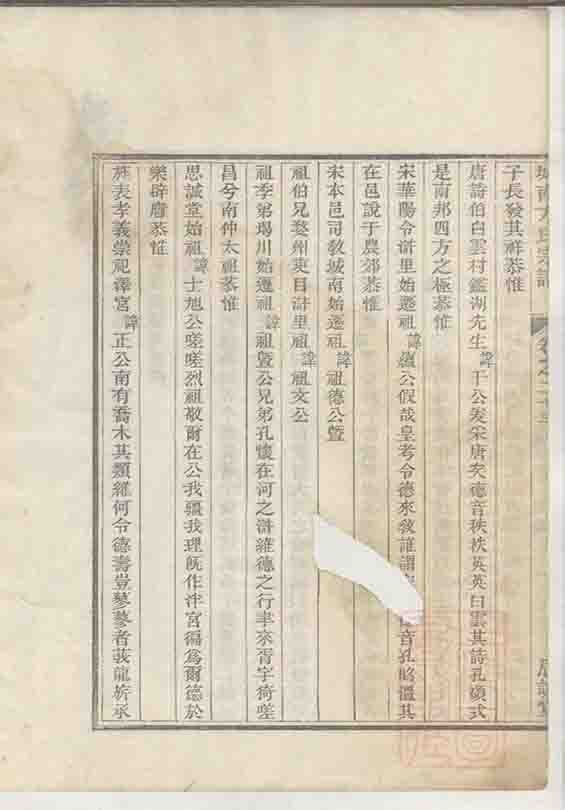 子長發其祥恭惟
唐詩伯白雲村鑑湖先生諱干公爰宋唐矣德音秩秩英英白雲其詩孔碩式
是南邦四方之極恭惟
宋華陽令諱里始遷祖諱 公假哉皇考令德來教誰謂 音孔昭溫其
在邑說于農郊恭惟
宋本邑司教城南始遷祖諱祖德公暨
祖伯兄婺州 目 里祖諱祖文公
祖季弟 川始遷祖諱祖暨公兄弟孔懷在河之滸維德之行聿來胥宇猗嗟
昌兮南仲太祖恭惟
思誠堂始祖諱士旭公嗟嗟烈祖敬爾在公我疆我理既作泮宮徧爲爾德於
樂辟廱恭惟
旌表孝義崇祀澤宮諱正公南有喬木其類維何令德壽豈蓼蓼者莪龍旂承